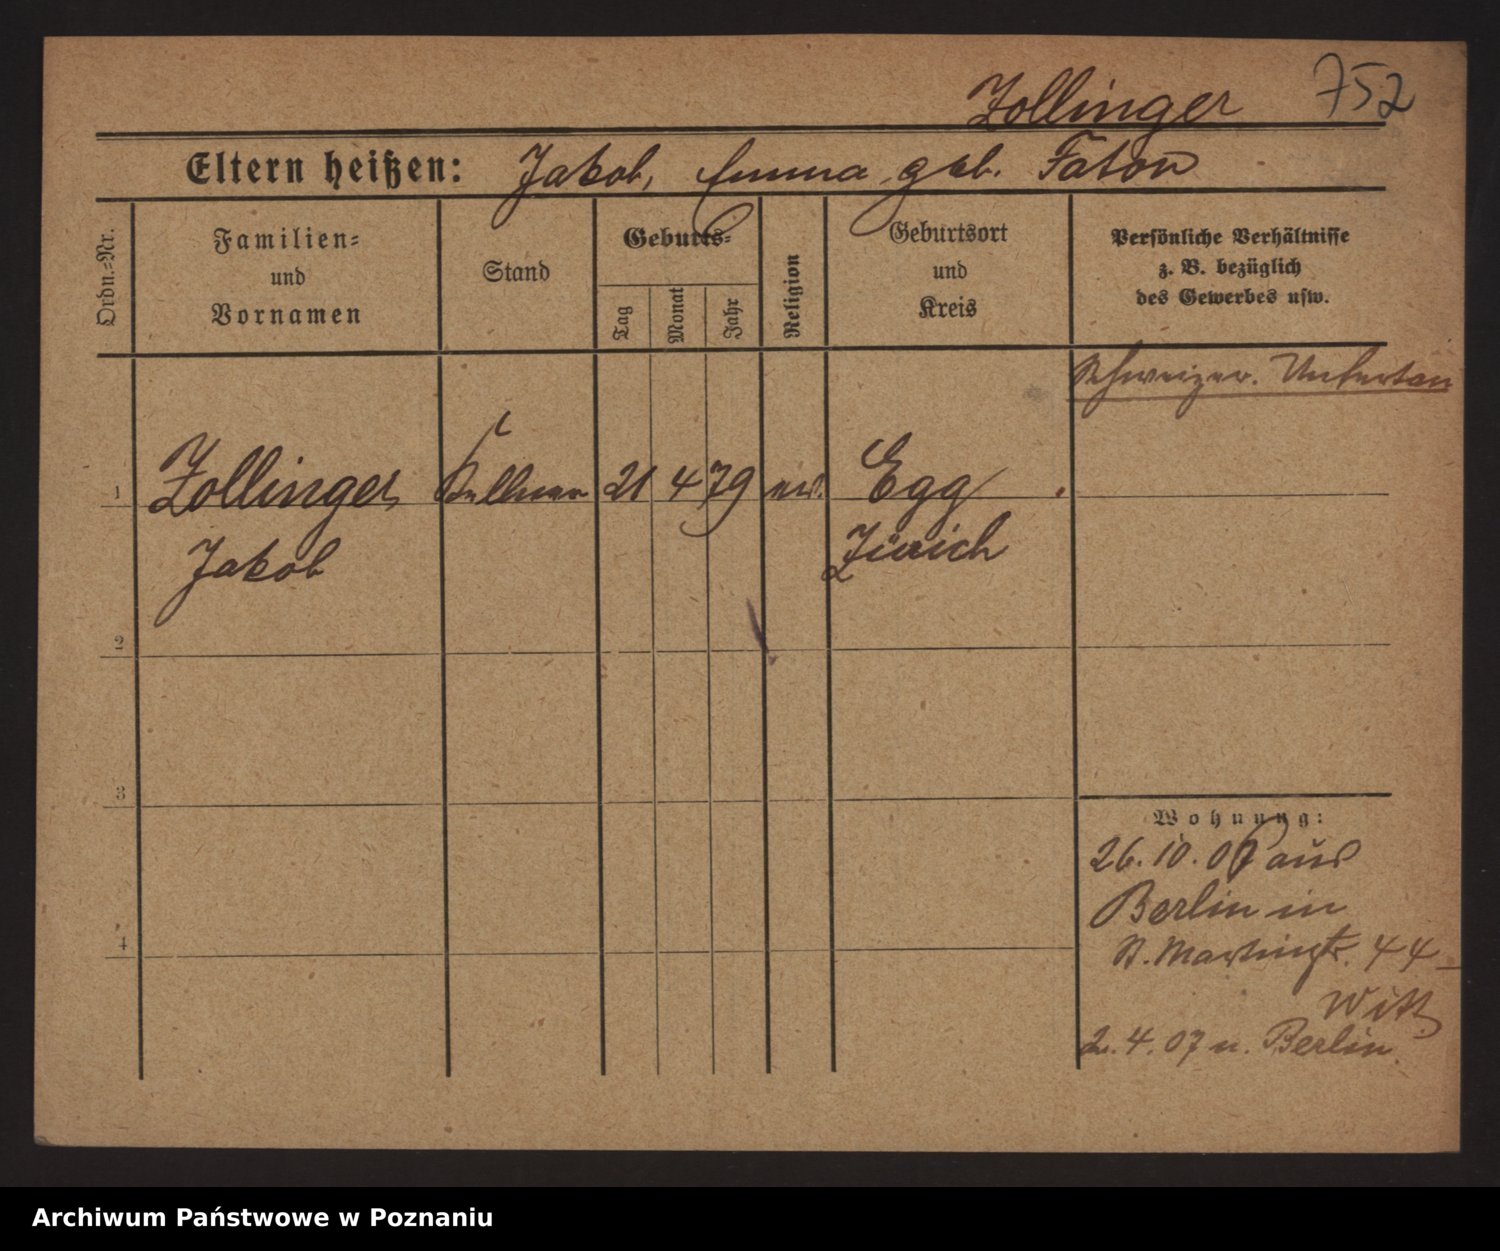 Zollinger 752
Eltern heißen: Jakob, Emma geb. Faton
Ordn.-Nr.
Familien-
und
Vornamen
Stand
Geburts-
Tag
Monat
Jahr
Religion
Geburtsort
und
Kreis
Persönliche Verhältnisse
z. B. bezüglich
des Gewerbes usw.
Schweizer. Untertan
1 Zollinger Kellner 21 4 79 ev. Egg
Jakob Zürich
2
3
4
Wohnung:
26. 10. 06 aus
Berlin in
St. Martinstr. 44
Witt
2. 4. 07 n. Berlin.
Archiwum Państwowe w Poznaniu